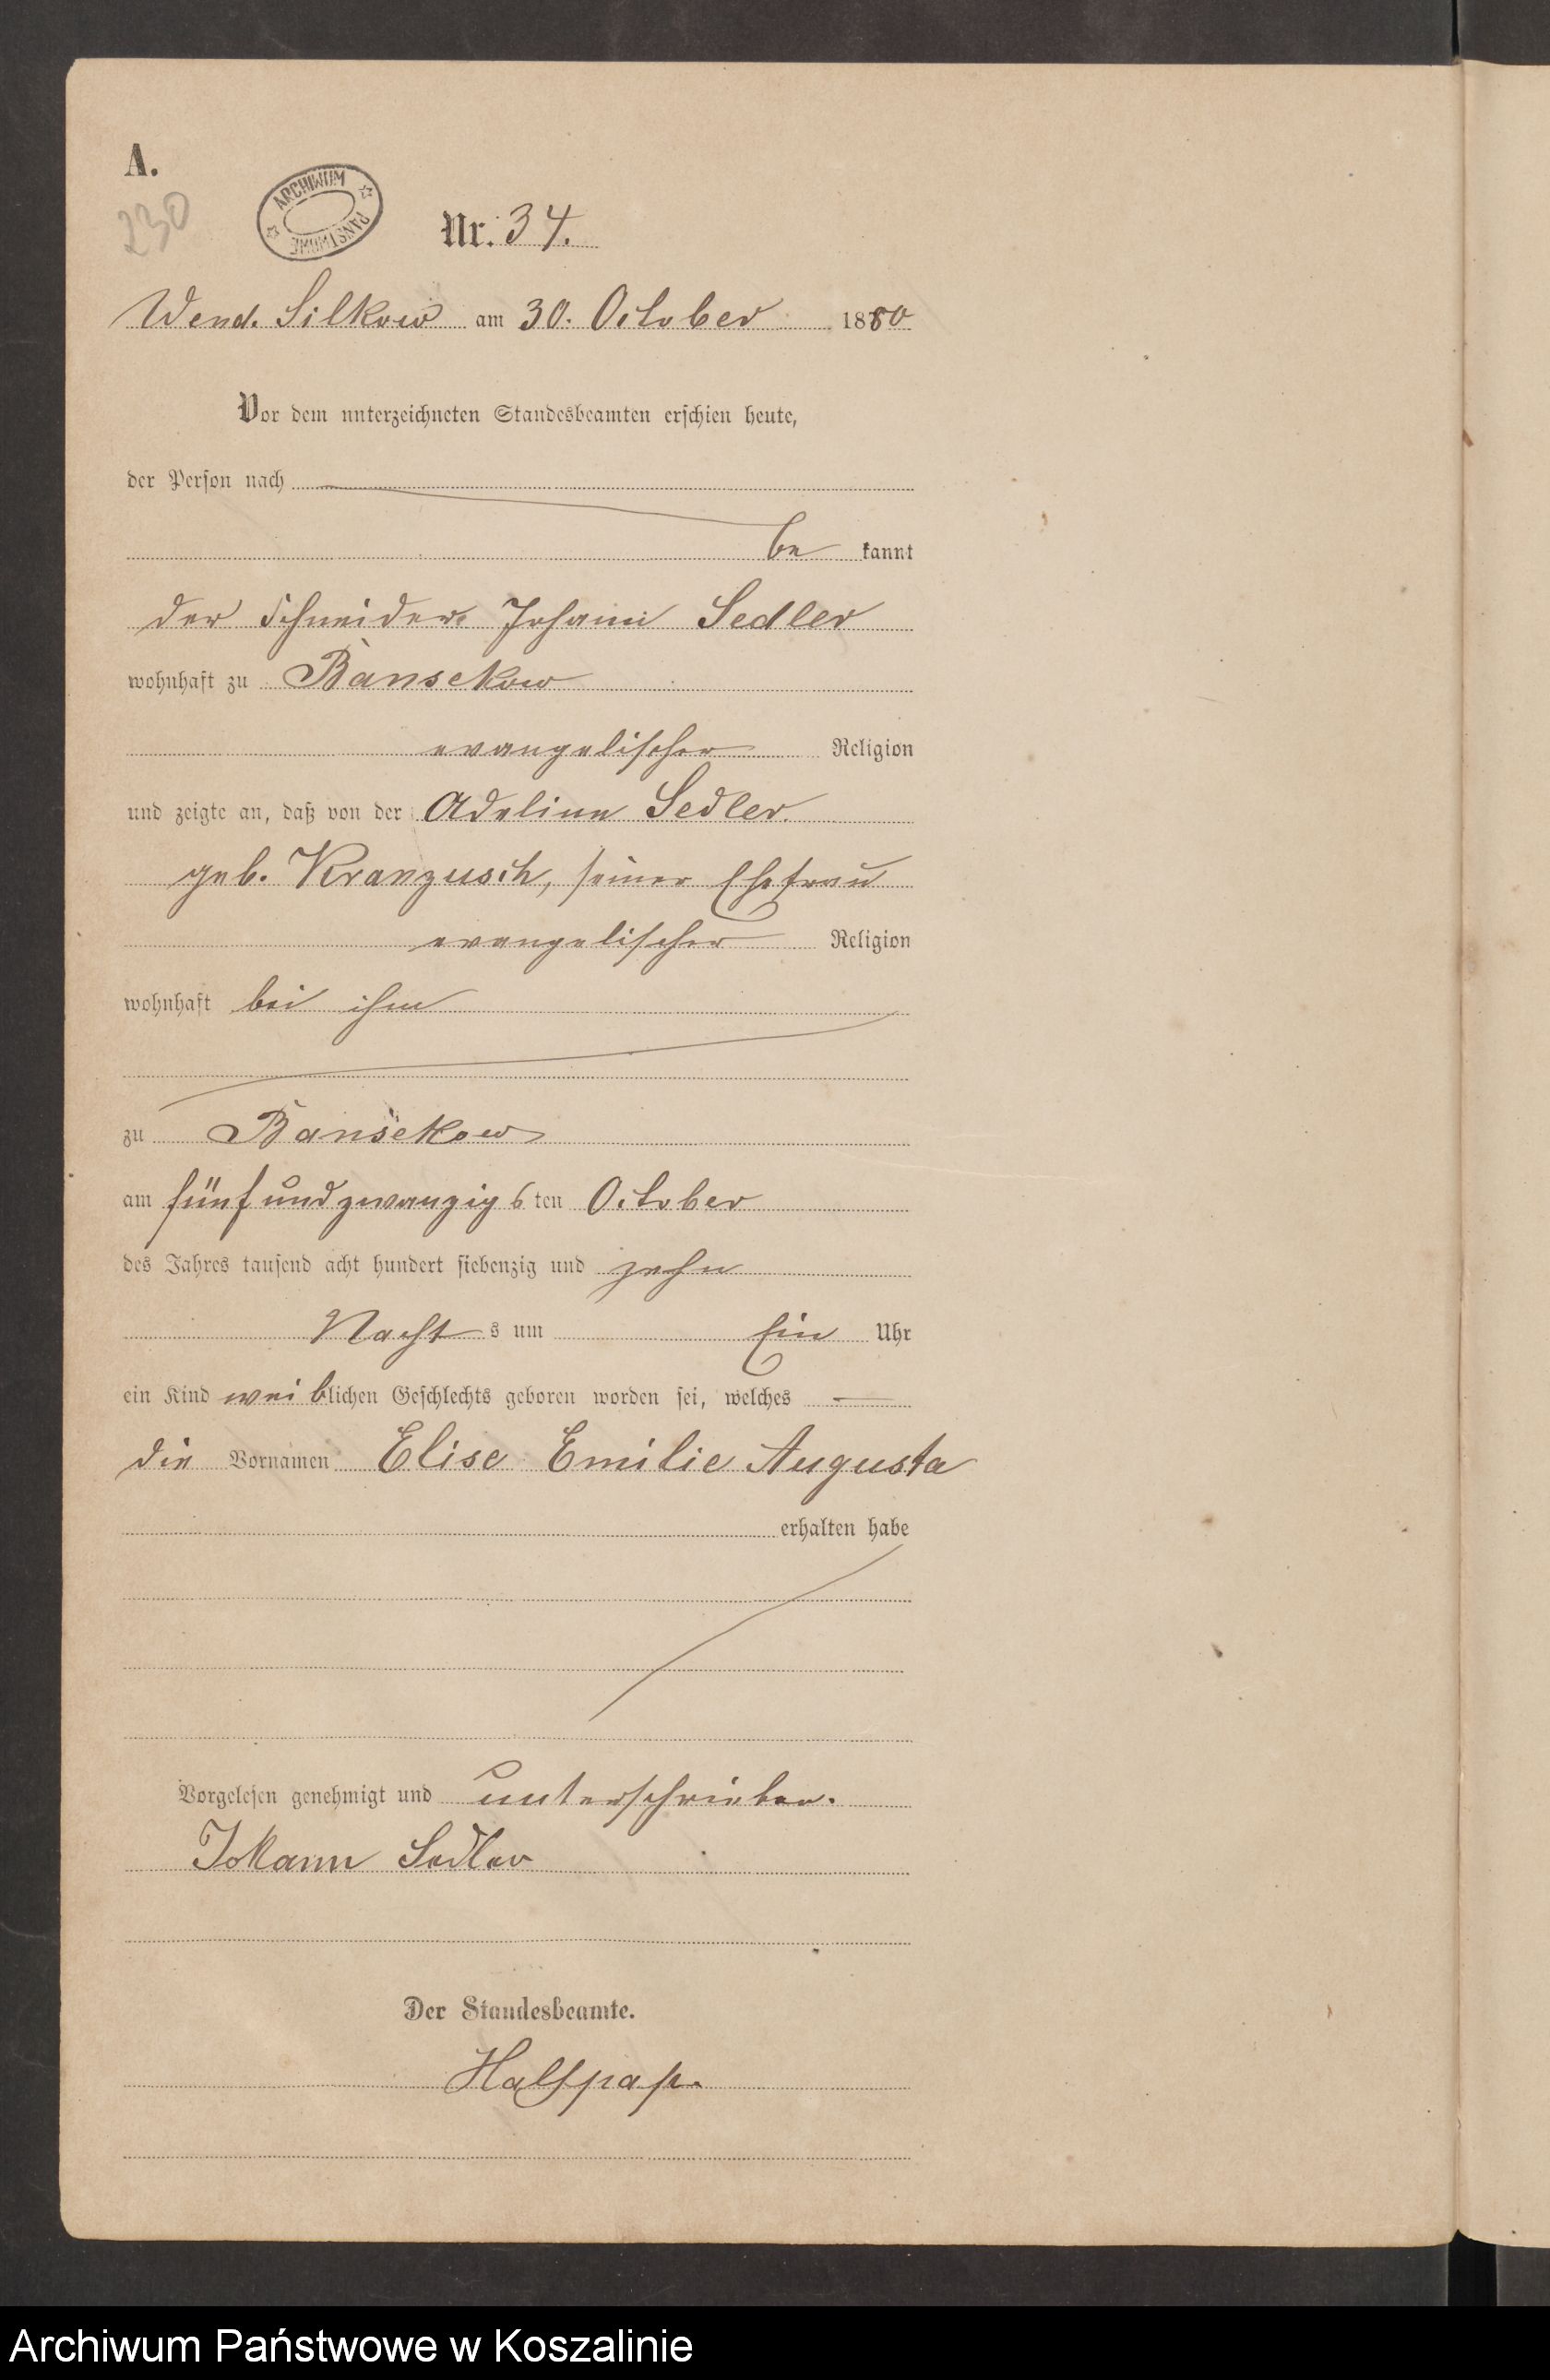 A.
230
ARCHIWUM PAŃSTWOWE
Nr. 34.
Wend. Silkow am 30. October 1880
Vor dem unterzeichneten Standesbeamten erschien heute,
der Person nach
be kannt
der Schneider Johann Sedler
wohnhaft zu Bansekow
evangelischer Religion
und zeigte an, daß von der Adeline Sedler
geb. Kranzusch, seiner Ehefrau
evangelischer Religion
wohnhaft bei ihm
zu Bansekow
am fünfundzwanzigsten October
des Jahres tausend acht hundert siebenzig und zehn
Nachts um Ein Uhr
ein Kind weiblichen Geschlechts geboren worden sei, welches —
die Vornamen Elise Emilie Augusta
erhalten habe
Vorgelesen genehmigt und unterschrieben.
Johann Sedler
Der Standesbeamte.
Halfpap.
Archiwum Państwowe w Koszalinie